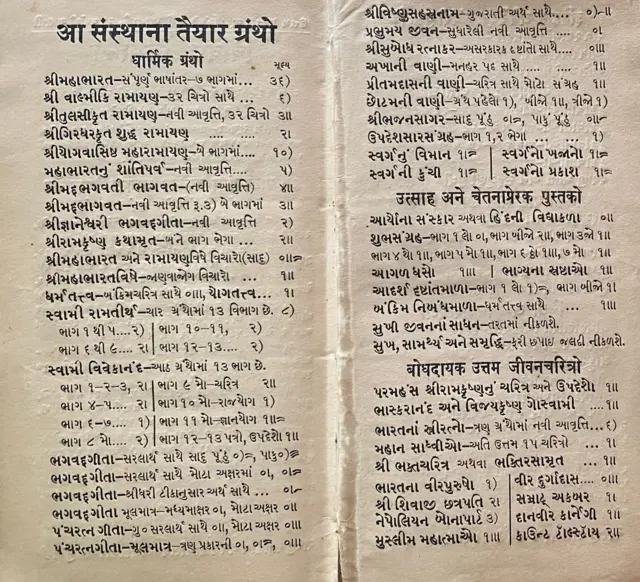 આ સંસ્થાના તૈયાર ગ્રંથો
ધાર્મિક ગ્રંથો મૂલ્ય
શ્રીમહાભારત-સંપૂર્ણ ભાષાંતર-૭ ભાગમાં... ૩૬)
શ્રી વાલ્મીકિ રામાયણ-૩૨ ચિત્રો સાથે ... ૬)
શ્રીતુલસીકૃત રામાયણ-નવી આવૃત્તિ, ૩૨ ચિત્રો ૩॥
શ્રીગિરધરકૃત શુદ્ધ રામાયણ .... ૨।
શ્રીયોગવાસિષ્ઠ મહારામાયણ-બે ભાગમાં.... ૧૦)
મહાભારતનું શાંતિપર્વ-નવી આવૃત્તિ.... ૫)
શ્રીમદ્દભગવતી ભાગવત-(નવી આવૃત્તિ) ૪॥
શ્રીમદ્દભાગવત-(નવી આવૃત્તિ રૂ.૩) બે ભાગમાં ૩॥
શ્રીજ્ઞાનેશ્વરી ભગવદ્દગીતા-(નવી આવૃત્તિ ૨)
શ્રીરામકૃષ્ણ કથામૃત-બંને ભાગ ભેગા ... ૨॥
શ્રીમહાભારત અને રામાયણવિષે વિચારો(સાદું) ૦॥=
શ્રીમહાભારતવિષે-જાણવાજોગ વિચારો ... ૧॥
ધર્મતત્ત્વ-બંકિમચરિત્ર સાથે ૦॥।, યોગતત્ત્વ... ૧।
સ્વામી રામતીર્થ-ચાર ગ્રંથોમાં ૧૩ વિભાગ છે. ૮)
ભાગ ૧થી ૫....૨) | ભાગ ૧૦-૧૧, ૨)
ભાગ ૬થી ૯ .... ૨) | ભાગ ૧૨-૧૩.... ૨)
સ્વામી વિવેકાનંદ-આઠ ગ્રંથોમાં ૧૩ ભાગ છે.
ભાગ ૧-૨-૩, ૨। | ભાગ ૯ મો-ચરિત્ર ૨॥
ભાગ ૪-૫.... ૨। | ભાગ ૧૦ મો-રાજયોગ ૧)
ભાગ ૬-૭.... ૧) | ભાગ ૧૧ મો-જ્ઞાનયોગ ૧॥=
ભાગ ૮ મો.... ૨) | ભાગ ૧૨-૧૩ પત્રો, ઉપદેશો ૧॥
ભગવદ્દગીતા-સરલાર્થ સાથે સાદું પૂંઠું ૦)=, પાકું૦)≡
ભગવદ્દગીતા-સરલાર્થ સાથે મોટા અક્ષરમાં ૦।, ૦।=
ભગવદ્દગીતા-શ્રીધરી ટીકાનુસાર અર્થ સાથે... ૦।-
ભગવદ્દગીતા મૂલમાત્ર-મધ્યમાક્ષર ૦।, મોટા અક્ષર ૦॥
પંચરત્નગીતા-ગુ૦ સરલાર્થ સાથે ૦॥, મોટા અક્ષર ૦॥।
પંચરત્નગીતા-મૂલમાત્ર-ત્રણ પ્રકારની ૦।, ૦।=, ૦॥।
શ્રીવિષ્ણુસહસ્રનામ-ગુજરાતી અર્થ સાથે....
પ્રભુમય જીવન-સુધારેલી નવી આવૃત્તિ .... ૦।
શ્રીસુબોધ રત્નાકર-અસરકારક દૃષ્ટાંતો સાથે... ૦॥।
અખાની વાણી-મનહર પદ સાથે .... ૧॥
પ્રીતમદાસની વાણી-ચરિત્ર સાથે મોટો સંગ્રહ ૧॥
છોટમની વાણી-ગ્રંથ પહેલો ૧), બીજો ૧॥, ત્રીજો ૧)
શ્રીભજનસાગર-સાદું પૂંઠું ૦।≡, પાકું પૂંઠું ૦॥-
ઉપદેશસારસંગ્રહ-ભાગ ૧,૨ ભેગા .... ૧)
સ્વર્ગનું વિમાન ૧।= | સ્વર્ગનો ખજાનો ૧।=
સ્વર્ગની કુંચી ૧।= | સ્વર્ગનો પ્રકાશ ૧।=
ઉત્સાહ અને ચેતનાપ્રેરક પુસ્તકો
આર્યોના સંસ્કાર અથવા હિંદની વિદ્યાકળા ૦॥
શુભસંગ્રહ-ભાગ ૧ લો ૦।, ભાગ બીજો ૨॥, ભાગ ૩જો ૧॥
ભાગ ૪ થો ૧॥, ભાગ ૫ મો ૧॥, ભાગ ૬ ઠ્ઠો ૧॥, ૭ મો ૧॥
આગળ ધસો ૧॥। | ભાગ્યના સ્રષ્ટાઓ ૧॥
આદર્શ દૃષ્ટાંતમાળા-ભાગ ૧ લો ૧)=, ભાગ બીજો ૧।
બંકિમ નિબંધમાળા-ધર્મતત્ત્વ સાથે ... ૧॥
સુખી જીવનનાં સાધન-તરતમાં નીકળશે.
સુખ, સામર્થ્ય અને સમૃદ્ધિ-ફરી છપાઈ જલદી નીકળશે.
બોધદાયક ઉત્તમ જીવનચરિત્રો
પરમહંસ શ્રીરામકૃષ્ણનું ચરિત્ર અને ઉપદેશો ૧॥
ભાસ્કરાનંદ અને વિજયકૃષ્ણ ગોસ્વામી ....૧॥
ભારતનાં સ્ત્રીરત્નો-ત્રણ ગ્રંથોમાં નવી આવૃત્તિ...૬)
મહાન સાધ્વીઓ-અતિ ઉત્તમ ૧૫ ચરિત્રો ... ૧॥
શ્રી ભક્તચરિત્ર અથવા ભક્તિરસામૃત ... ૧॥
ભારતના વીરપુરુષો ૧) | વીર દુર્ગાદાસ.... ૦॥।
શ્રી શિવાજી છત્રપતિ ૨। | સમ્રાટ્ અકબર ૧॥
નેપોલિયન બોનાપાર્ટ ૩) | દાનવીર કાર્નેગી ૧।
મુસ્લીમ મહાત્માઓ ૧॥। | કાઉન્ટ ટૉલ્સ્ટૉય ૨॥